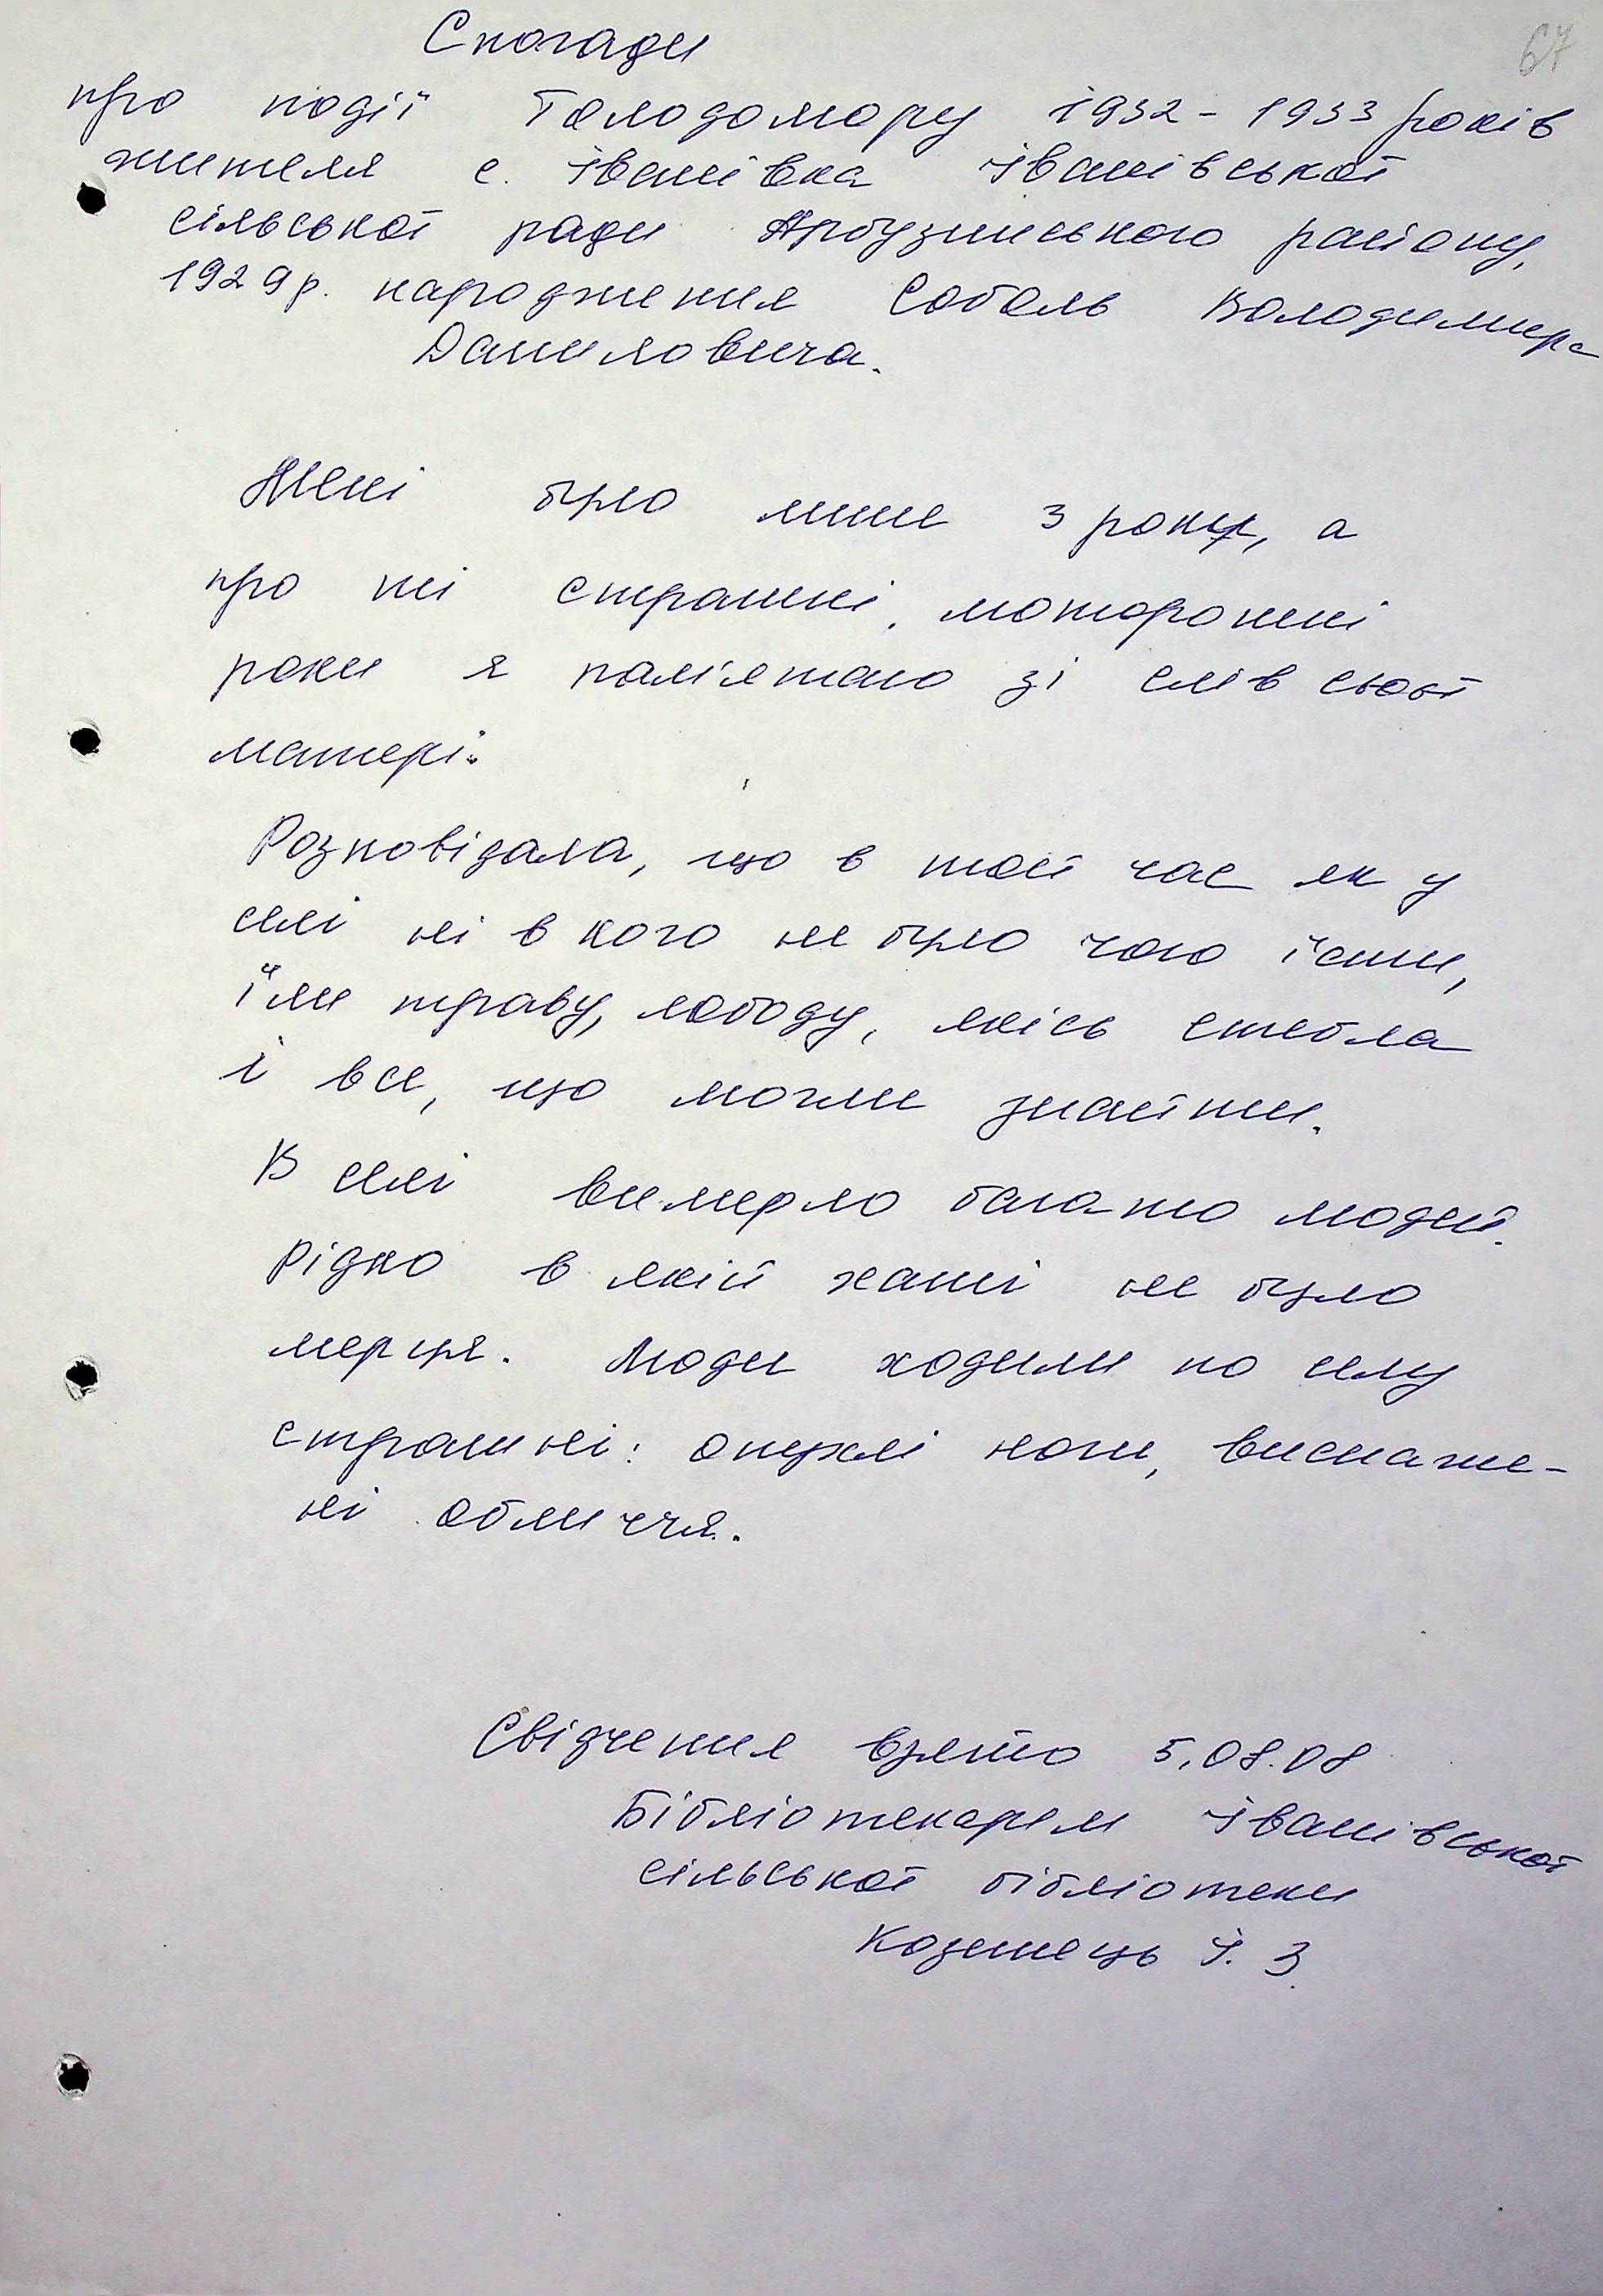 67
Спогади
про події Голодомору 1932-1933 років
жителя с. Іванівка Іванівської
сільської ради Арбузинського району,
1929р. народження Соболь Володимира
Даниловича.
Мені було лише 3 роки, а
про ці страшні, моторошні
роки я пам'ятаю зі слів своєї
матері.
Розповідала, що в той час як у
селі ні в кого не було чого їсти,
їли траву, лободу, якісь стебла
і все, що могли знайти.
В селі вимерло багато людей.
Рідко в якій хаті не було
мерця. Люди ходили по селу
страшні: опухлі ноги, виснаже-
ні обличчя.
Свідчення взято 5.08.08
Бібліотекарем Іванівської
сільської бібліотеки
Козинець І. З.